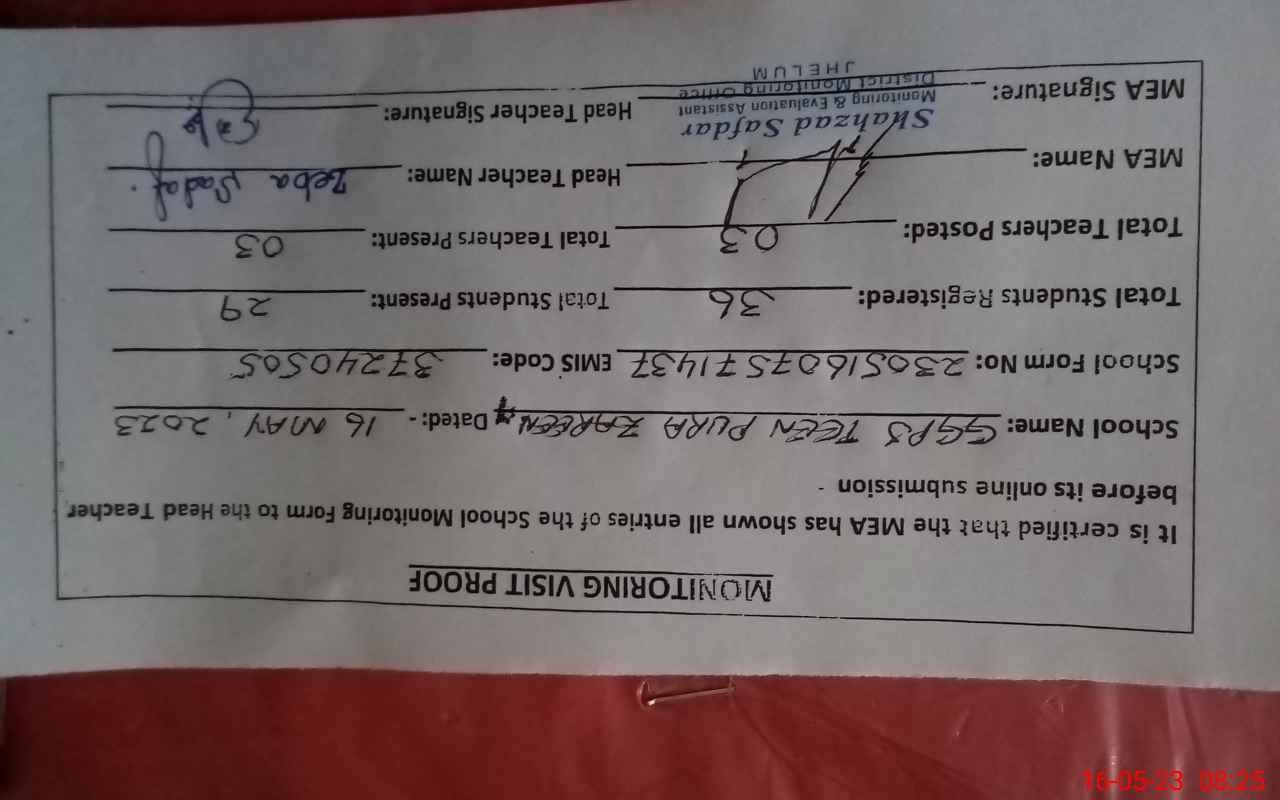 MONITORING VISIT PROOF
It is certified that the MEA has shown all entries of the School Monitoring Form to the Head Teacher
before its online submission
School Name: GGPS TEEN PURA ZAREEN Dated:- 16 MAY, 2023
School Form No: 23051607571437 EMIS Code: 37240505
Total Students Registered: 36 Total Students Present: 29
Total Teachers Posted: 03 Total Teachers Present: 03
MEA Name: Head Teacher Name: Zeba Sadaf.
Shahzad Safdar
Monitoring & Evaluation Assistant
MEA Signature: Head Teacher Signature:
District Monitoring Office
JHELUM
16-05-23 08:25